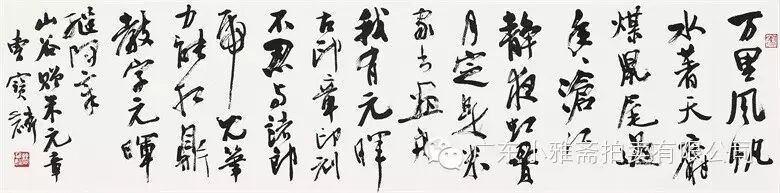 万里风帆
水著天麝
煤鼠尾过
年々沧江
静夜虹貫
月定是米
家书画船
我有元暉
古印章印刓
不忍与諸郎
虎儿筆
力能扛鼎
教字元暉
继阿章
山谷贈米元章
曹寶麟
广东小雅斋拍卖有限公司